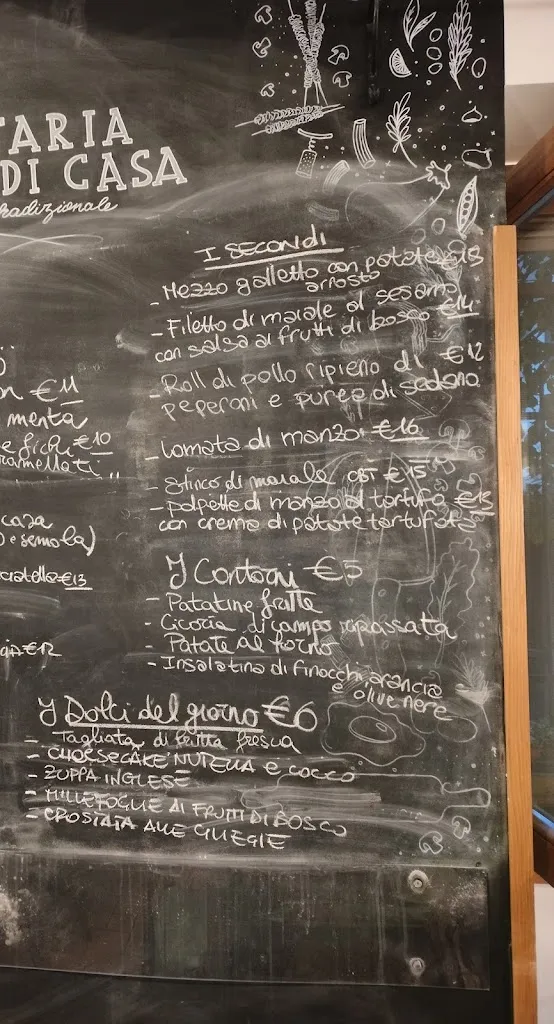 TARIA
DI CASA
tradizionale
I SECONDI
- Mezzo galletto con patate
arrosto
- Filetto di maiale al sesamo
con salsa ai frutti di bosco €14
- Roll di pollo ripieno di €12
peperoni e purea di sedano
- Tomata di manzo €16
- Stinco di maiale CBT €15
- Polpette di manzo al tartufo
con crema di patate tartufata
€11
menta
e fichi €10
casa
e semola)
€13
€12
I Contorni €5
- Patatine fritte
- Cicoria di campo ripassata
- Patate al forno
- Insalatina di finocchi, arancia
e olive nere
I Dolci del giorno €6
- Tagliata di frutta fresca
- CHEESECAKE NUTELLA E COCCO
- ZUPPA INGLESE
- MILLEFOGLIE AI FRUTTI DI BOSCO
- CROSTATA ALLE CILIEGIE